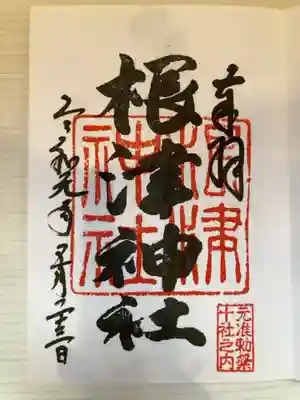 奉拝
根津神社
根津
神社
元准勅祭
十社之内
令和元年 月 日